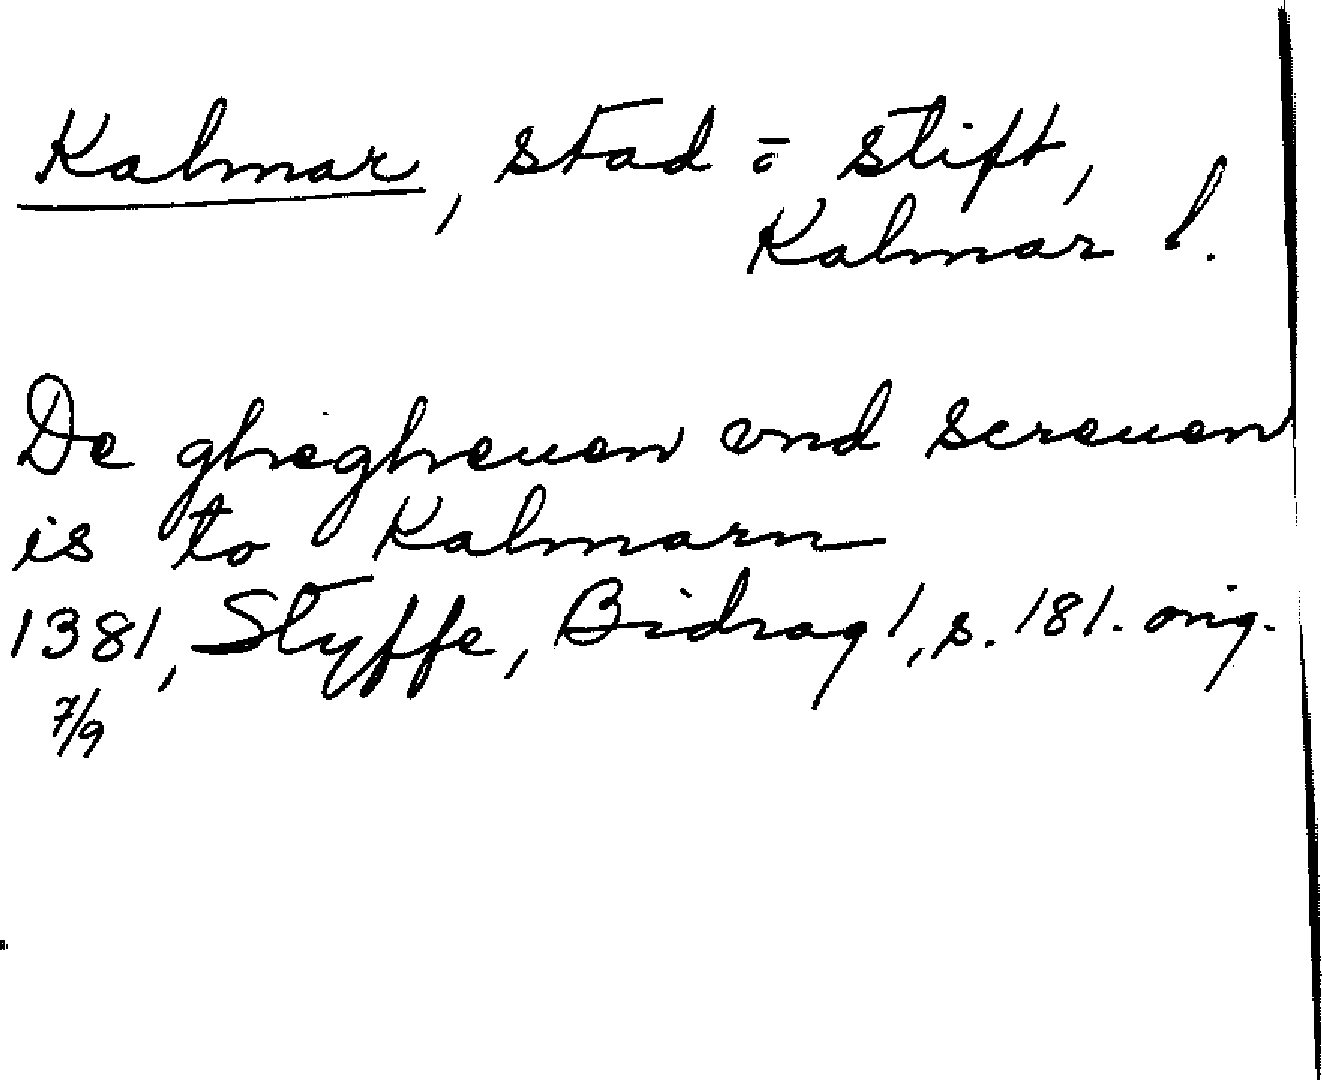 Kalmar, stad ō stift,
Kalmar l.
De ghegheuen vnd screuen
is to Kalmarn
1381, Styffe, Bidrag 1, s. 181. orig.
7/9